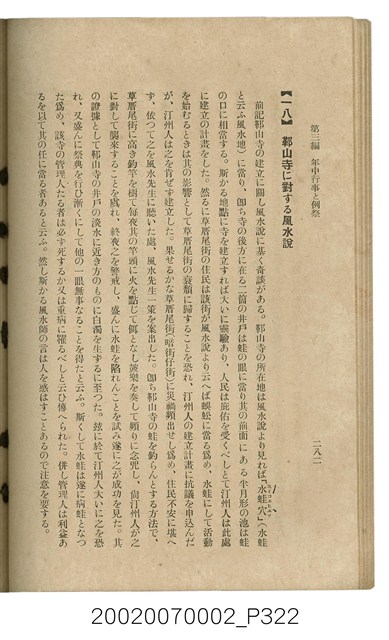 第三編　年中行事と例祭
二八二
【一八】　鄞山寺に對する風水說
前記鄞山寺の建立に關し風水說に基く奇談がある。鄞山寺の所在地は風水說より見れば「水蛙穴」(水蛙
と云ふ風水地)に當り、卽ち寺の後方に在る二箇の井戶は蛙の眼に當り其の前面にある半月形の池は蛙
の口に相當する。斯かる地點に寺を建立すれば大いに靈驗あり、人民は庇佑を受くべしとて汀州人は此處
に建立の計畫をした。然るに草厝尾街の住民は該街が風水說より云へば蜈蚣に當る爲め、水蛙にして活動
を始むるときは其の影響として草厝尾街の衰頹に歸することを恐れ、汀州人の建立計畫に抗議を申込んだ
が、汀州人は之を肯ぜず建立した。果せるかな草厝尾街(暗街仔街)に災禍頻出せし爲め、住民不安に堪へ
ず、依つて之を風水先生に聽いた處、風水先生一策を案出した。卽ち鄞山寺の蛙を釣らんとする方法で、
草厝尾街に高き釣竿を樹て每夜其の竿頭に火を點じて餌となし鼓樂を奏して頻りに念咒し、尙汀州人が之
に對して襲來することを虞れ、終夜之を警戒し、盛んに水蛙を陷れんことを試み遂に之が成功を見た。其
の證據として鄞山寺の井戶の淡水に近き方のものに白濁を生ずるに至つた。玆に於て汀州人大いに之を恐
れ、又盛んに祭典を行ひ漸くにして他の一眼無事なることを得たと云ふ。斯くして水蛙は遂に病蛙となつ
た爲め、該寺の管理人たる者は必ず死するか又は重病に罹るべしと云ひ傳へられた。併し管理人は利益あ
るを以て其の任に當る者あると云ふ。然し斯かる風水師の言は人を惑はすことあるので注意を要する。
20020070002_P322